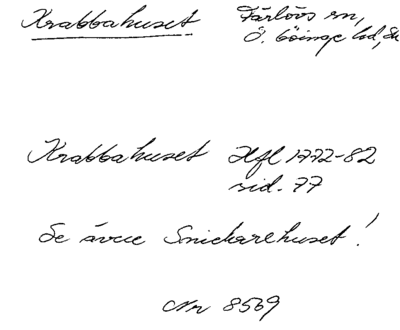 Krabbahuset Färlövs sn,
Ö. Göinge hd, Sk
Krabbahuset Hfl 1772-82
sid. 77
Se även Snickarehuset!
Nr 8569